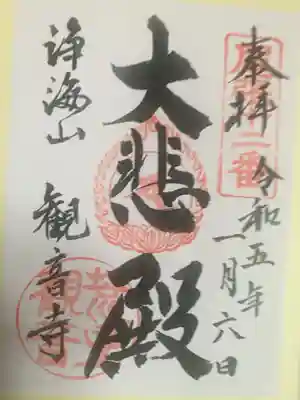 奉拝
令和五年
一月六日
大悲殿
浄海山
観音寺
二番